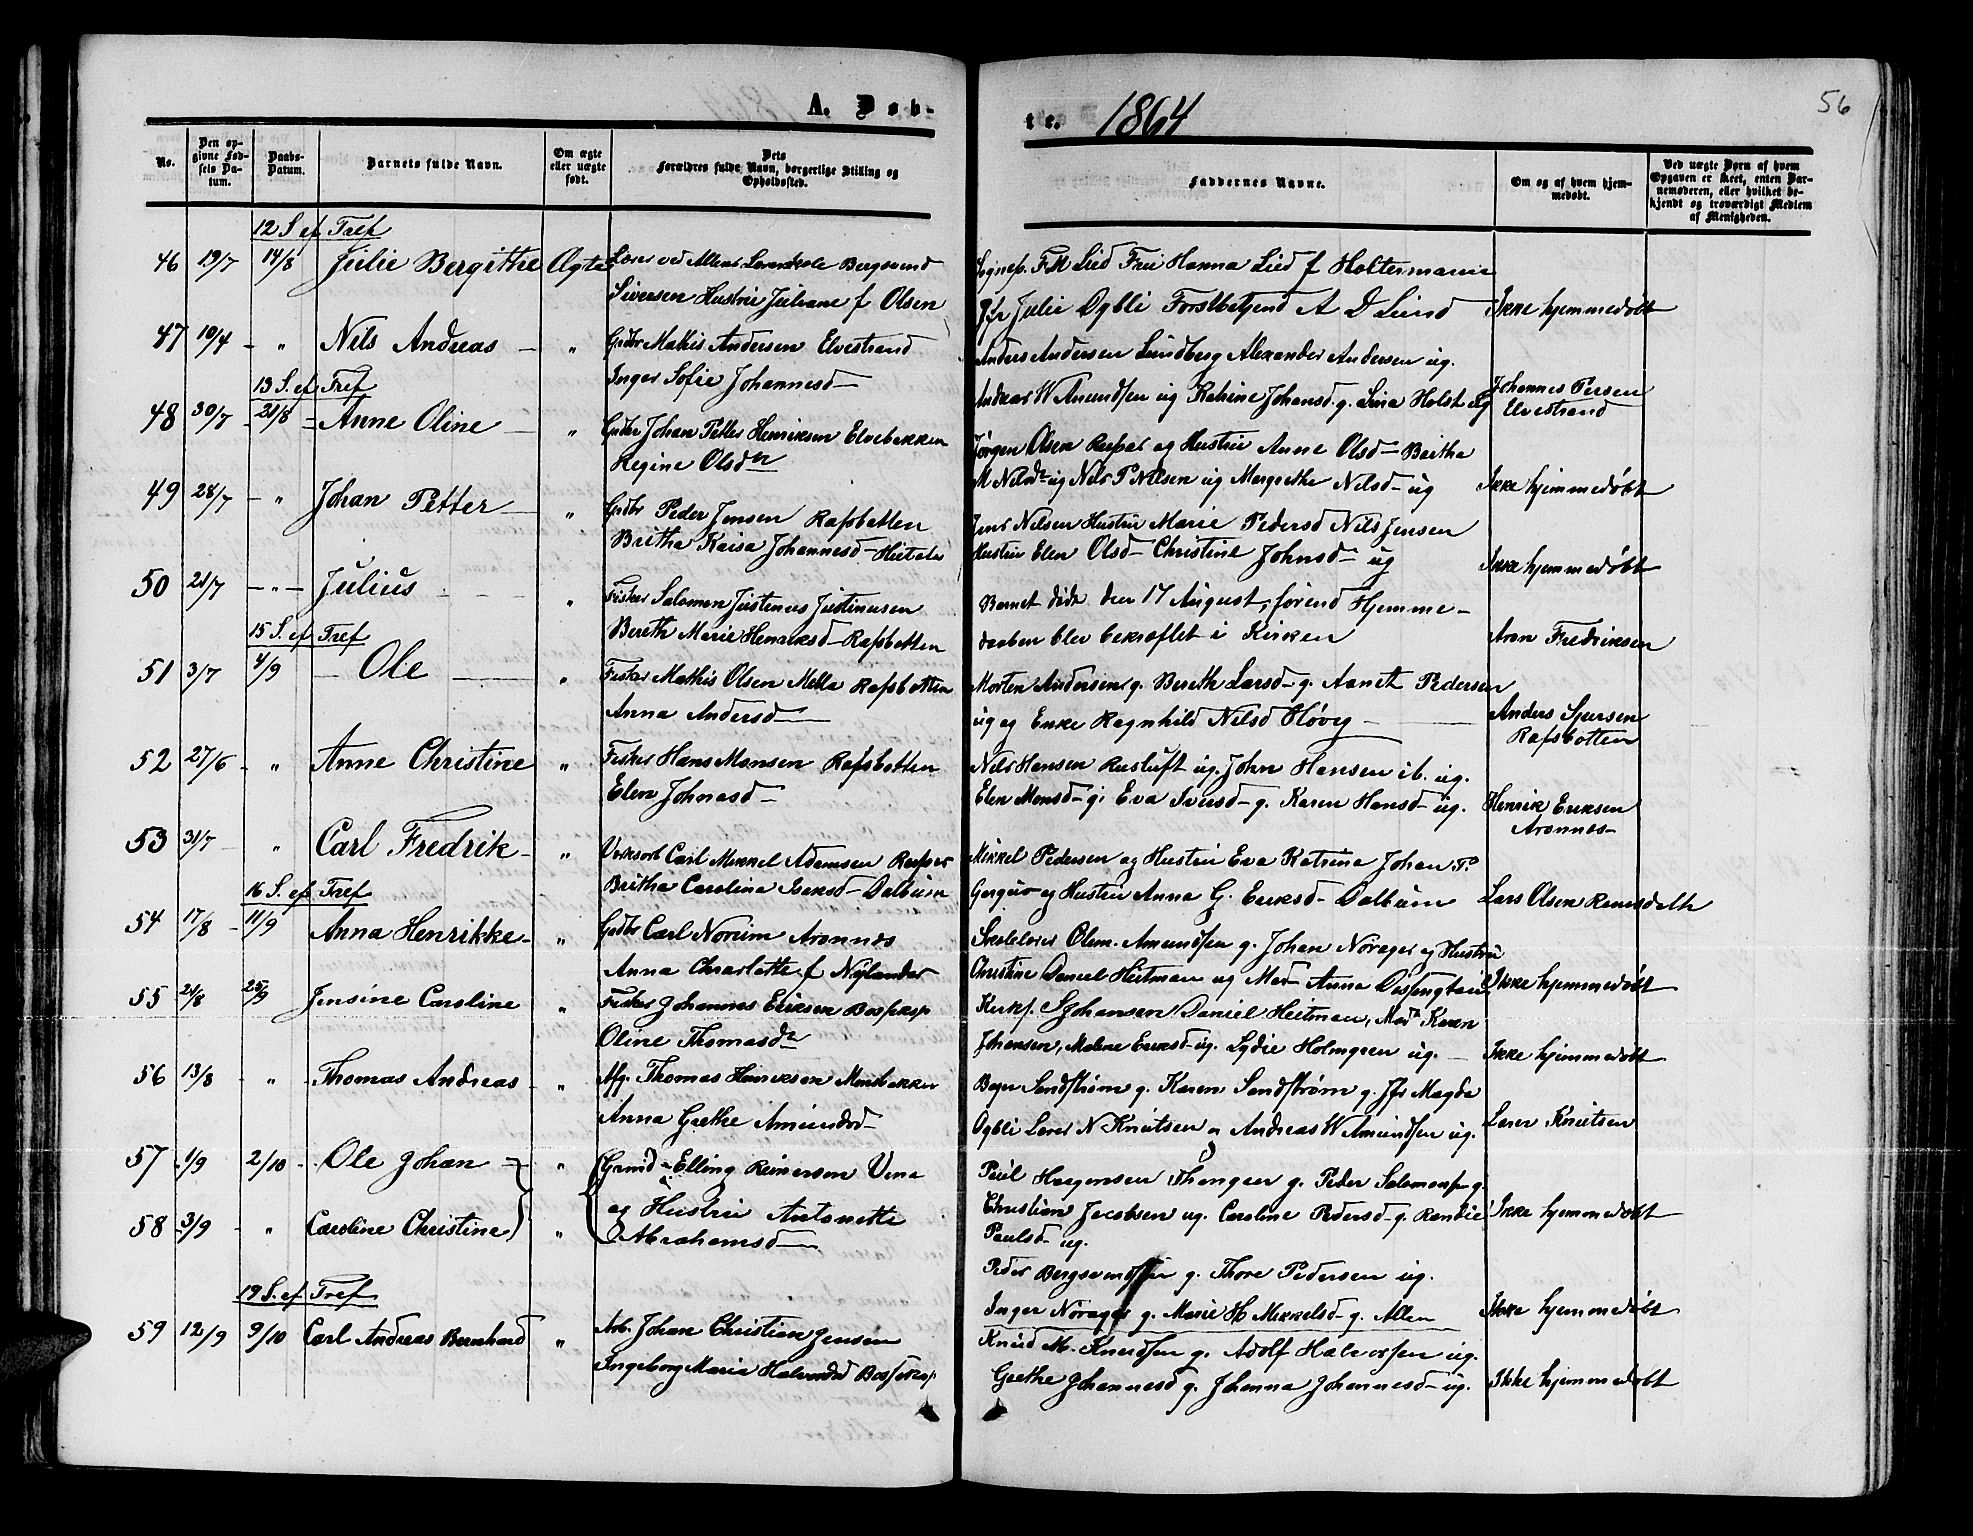 A. Døb-
te. 1864
56
No.
Den op-
givne Fød-
sels Da-
tum.
Daabs-
Datum.
Barnets fulde Navn.
Om ægte
eller uægte
født.
Dets
Forældres fulde Navn, borgerlige Stilling og
Opholdssted.
Faddernes Navne.
Om og af hvem hjem-
medøbt.
Ved uægte Børn af hvem
Opgaven er skeet, enten Bar-
nemoderen, eller hvilket be-
kjendt og troværdigt Medlem
af Menigheden.
12 S. ef Tref
46 19/7 14/8 Julie Bergithe Ægte Lærer ved Altens Lærerskole Bergsvend
Siversen Hustru Juliane f Olsen
Sognep. F.M Lied Frue Hanna Lied f Holtermann
Jfr Julie Dybli Forstbetjend A D Lund Ikke hjemmedøbt
47 10/4 - " Nils Andreas - " Gdbr Mathis Andersen Elvestrand
Inger Sofie Johannesd-
Anders Andersen Lundberg Alexander Andersen ug.
Andreas W Amundsen ug Katrine Johansd. g. Lina Holst ug Johannes Persen
Elvestrand
13 S. ef Tref
48 30/7 21/8 Anne Oline - " Gdbr Johan Petter Henriksen Elvebakken
Regine Olsdr
Jørgen Olsen Raipas og Hustru Anne Olsd- Beritha
M Nilsdr ug Nils P Nilsen ug Margrethe Nilsd- ug Ikke hjemmedøbt
49 28/7 - " Johan Petter - " Gdbr Peder Jensen Rafsbotten
Britha Kaisa Johannesd-
Jens Nilsen Hustru Marie Pedersd Nils Jensen
Hustru Elen Olsd- Christine Johnsd- ug Ikke hjemmedøbt
50 21/7 - " - Julius " Fisker Salomon Justinus Justinusen
Bereth Marie Henriksd- Rafsbotten
Barnet døde den 17 August, førend Hjemme-
daaben blev bekræftet i Kirken Aron Fredriksen
15 S. ef Tref
51 3/7 4/9 - Ole - " Fisker Mathis Olsen Mella Rafsbotten
Anna Andersd-
Morten Andersen g. Bereth Larsd- g. Aanet Pedersen
ug og Enke Ragnhild Nilsd Høvg - Anders Sjursen
Rafsbotten
52 27/6 - " Anne Christine " Fisker Hans Monsen Rafsbotten
Elen Johnasd-
Nils Hansen Rusluft ug. John Hansen ib. ug.
Elen Monsd- g. Eva Iversd- g. Karen Hansd- ug. Henrik Eriksen
Aronnes-
53 31/7 - " Carl Fredrik - " Værksarb Carl Mikkel Adamsen Raipas
Britha Carolina Eriksd- Dalbum
Mikkel Pedersen og Hustru Eva Katrina Johan P.
og Hustru Anna G. Eriksd- Dalbum Lars Olsen
16 S. ef Tref
54 17/8 - 11/9 Anna Henrikke - " Gdbr Carl Norum Aronnes
Anna Charlotte f Nylander
Skolelærer Olem. Amundsen g. Johan Nørager og Hustru
Christine Daniel Heitman ug Mad- Anna Ikke hjemmedøbt
55 21/8 25/9 Jensine Caroline " Fisker Johannes Eriksen Bossekop
Oline Thomasdr
Kirks. S Johansen Daniel Heitman, Mad. Karen
Johansen, Malene Eriksd- ug. Lydie Holmgren ug. - Ikke hjemmedøbt
56 13/8 - " - Thomas Andreas - " Thomas Henriksen
Anna Grethe Amundsd-
Sandstrøm g. Karen Sandstrøm g. Jfr Magda
Dybli Lærer N Knutsen ug Andreas W Amundsen ug. Lærer Knutsen
57 1/9 2/10 - Ole Johan - " Elling Reiersen Vina
og Hustru Antonette
Abrahamsd-
Paul Haagensen Thongen g. Peder Salomons. g.
Christian Jacobsen ug. Caroline Pedersd- g. Randie
Paulsd- ug. Ikke hjemmedøbt
58 3/9 - " Caroline Christine "
Peder Bergsvendsen g. Thore Pedersen ug.
Inger Nørager g. Marie H Mikkelsd- g. Alten Ikke hjemmedøbt
19 S. ef Tref
59 12/9 9/10 Carl Andreas Bernhard " Arb. Johan Christian Jensen
Ingeborg Marie Halvorsd Bossekop
Knud M. Knudsen g. Adolf Halvorsen ug.
Grethe Johannesd g. Johanna Johannesd- ug. Ikke hjemmedøbt